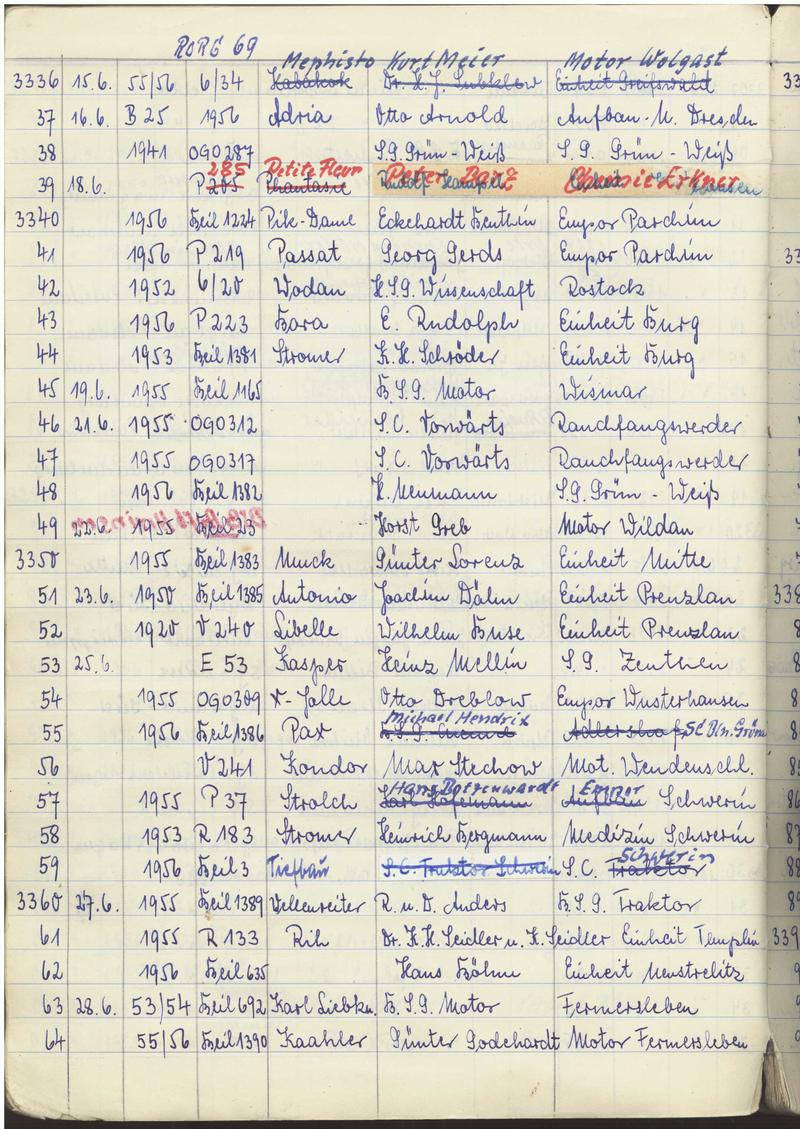 RORG 69
Mephisto Kurt Meier Motor Wolgast
3336 15.6. 55/56 6/34 Kabakok Dr. H. J. Subklew Einheit Greifswald
37 16.6. B 25 1956 Adria Otto Arnold Aufbau-M. Dresden
38 1941 OGO287 S.G. Grün-Weiß S.G. Grün-Weiß
285 Petite Fleur Peter Chemie Erkner
39 18.6. P 205 Phantasie
3340 1956 Beil 1224 Pik-Dame Eckehardt Benthin Empor Parchim
41 1956 P 219 Passat Georg Gerds Empor Parchim
42 1952 6/20 Wodan H.S.G. Wissenschaft Rostock
43 1956 P 223 Bora E. Rudolph Einheit Burg
44 1953 Beil 1381 Stromer K. H. Schröder Einheit Burg
45 19.6. 1955 Beil 1165 B.S.G. Motor Wismar
46 21.6. 1955 OGO312 S.C. Vorwärts Rauchfangswerder
47 1955 OGO317 S.C. Vorwärts Rauchfangswerder
48 1956 Beil 1382 H. Neumann S.G. Grün-Weiß
49 22.6. 1955 Beil 23 Horst Greb Motor Wildau
3350 1955 Beil 1383 Muck Günter Lorenz Einheit Mitte
51 23.6. 1950 Beil 1385 Antonio Joachim Dähn Einheit Prenzlau
52 1920 V 240 Libelle Wilhelm Buse Einheit Prenzlau
53 25.6. E 53 Kasper Heinz Mellin S.G. Zeuthen
54 1955 OGO309 X-Jolle Otto Dreblow Empor Wusterhausen
Michael Hendrix
55 1956 Beil 1386 Pax B.S.G. Adlershof SC Bln. Grün
56 V 241 Kondor Max Stechow Mot. Wendenschl.
Hans Bottenwardt Empor
57 1955 P 37 Strolch Karl Hofemann Aufbau Schwerin
58 1953 R 183 Stromer Heinrich Bergmann Medizin Schwerin
Schwerin
59 1956 Beil 3 Tiefbau S.C. Traktor Schwerin S.C. Traktor
3360 27.6. 1955 Beil 1389 Wellenreiter R. u. D. Anders B.S.G. Traktor
61 1955 R 133 Rih Dr. K. H. Seidler u. K. Seidler Einheit Templin
62 1956 Beil 635 Hans Böhm Einheit Neustrelitz
63 28.6. 53/54 Beil 692 Karl Liebkn. B.S.G. Motor Fermersleben
64 55/56 Beil 1390 Kaahler Günter Godehardt Motor Fermersleben